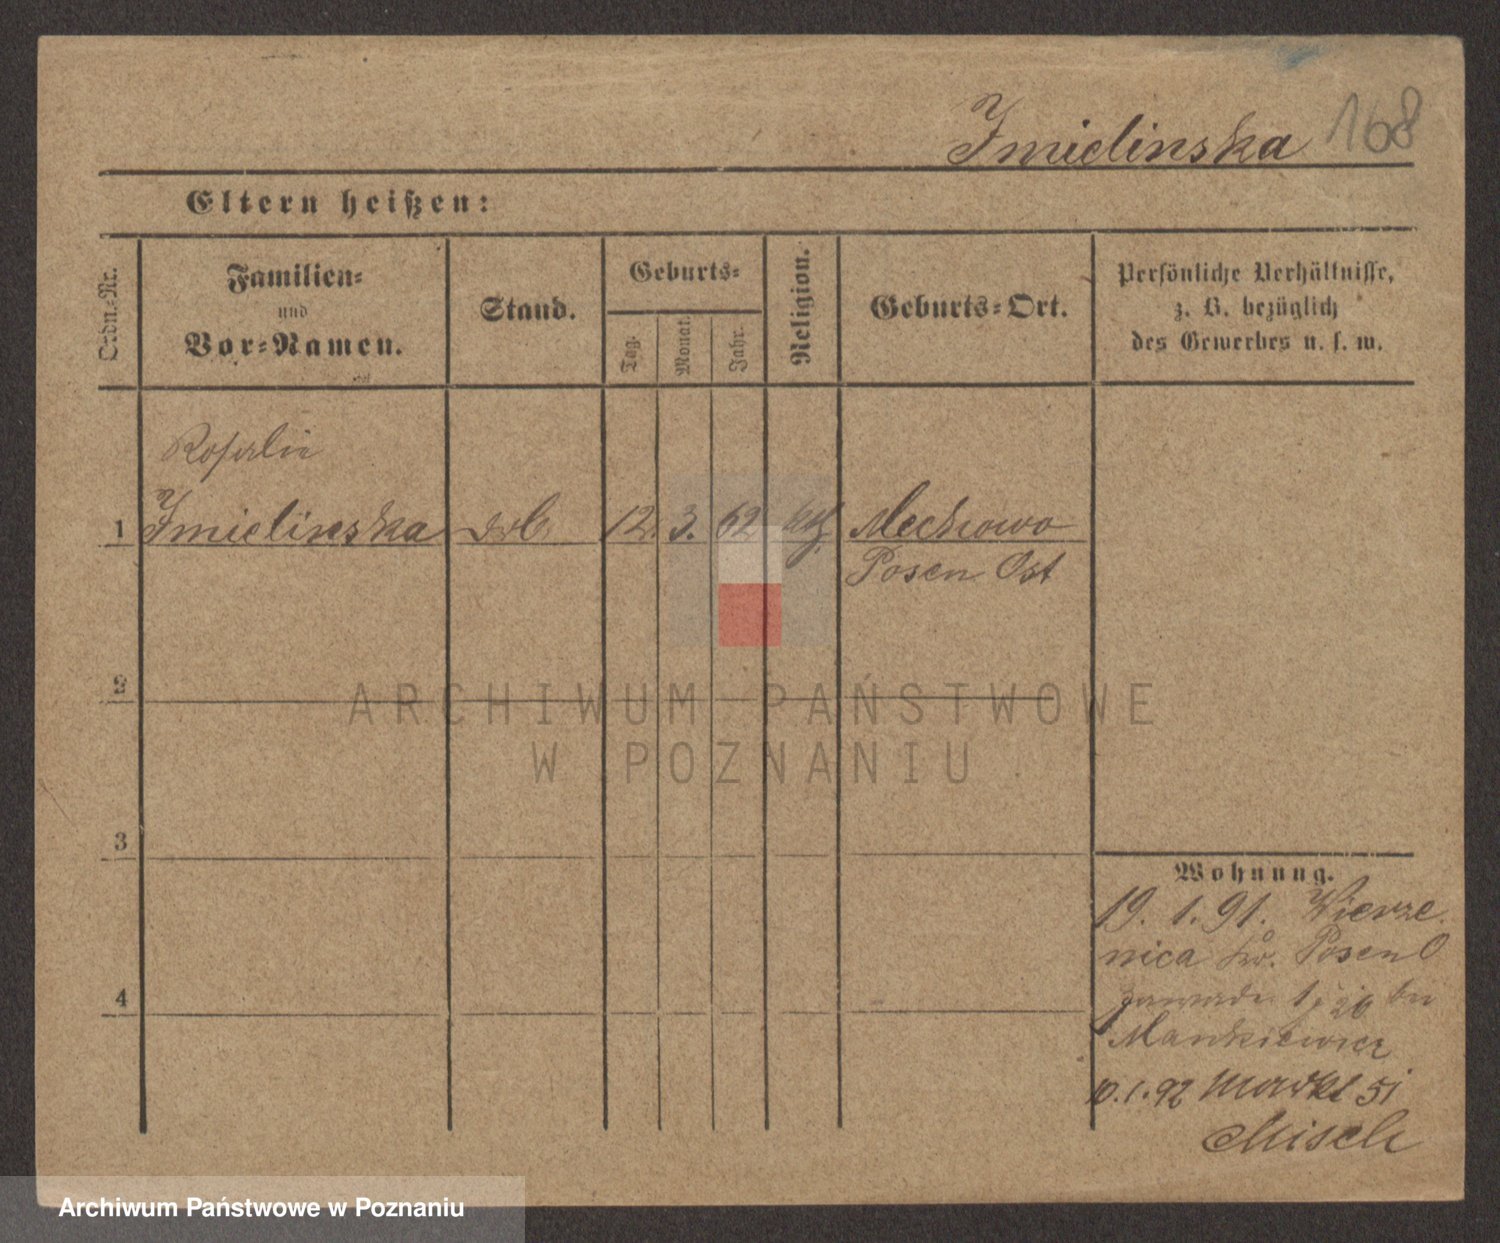 168
Imielinska
Eltern heißen:
Ordn.-Nr.
Familien-
und
Vor-Namen.
Stand.
Geburts-
Tag.
Monat.
Jahr.
Religion.
Geburts-Ort.
Persönliche Verhältnisse,
z. B. bezüglich
des Gewerbes u. s. w.
Rosalie
1 Imielinska 12. 3. 62 kth. Mechowo
Posen Ost
2
3
4
Wohnung.
19. 1. 91. Wierze
nica Posen O
Zawade 1, 20 bei
Mankiewicz
10.1.92 Markt 51
Misch
ARCHIWUM PAŃSTWOWE
W POZNANIU
Archiwum Państwowe w Poznaniu